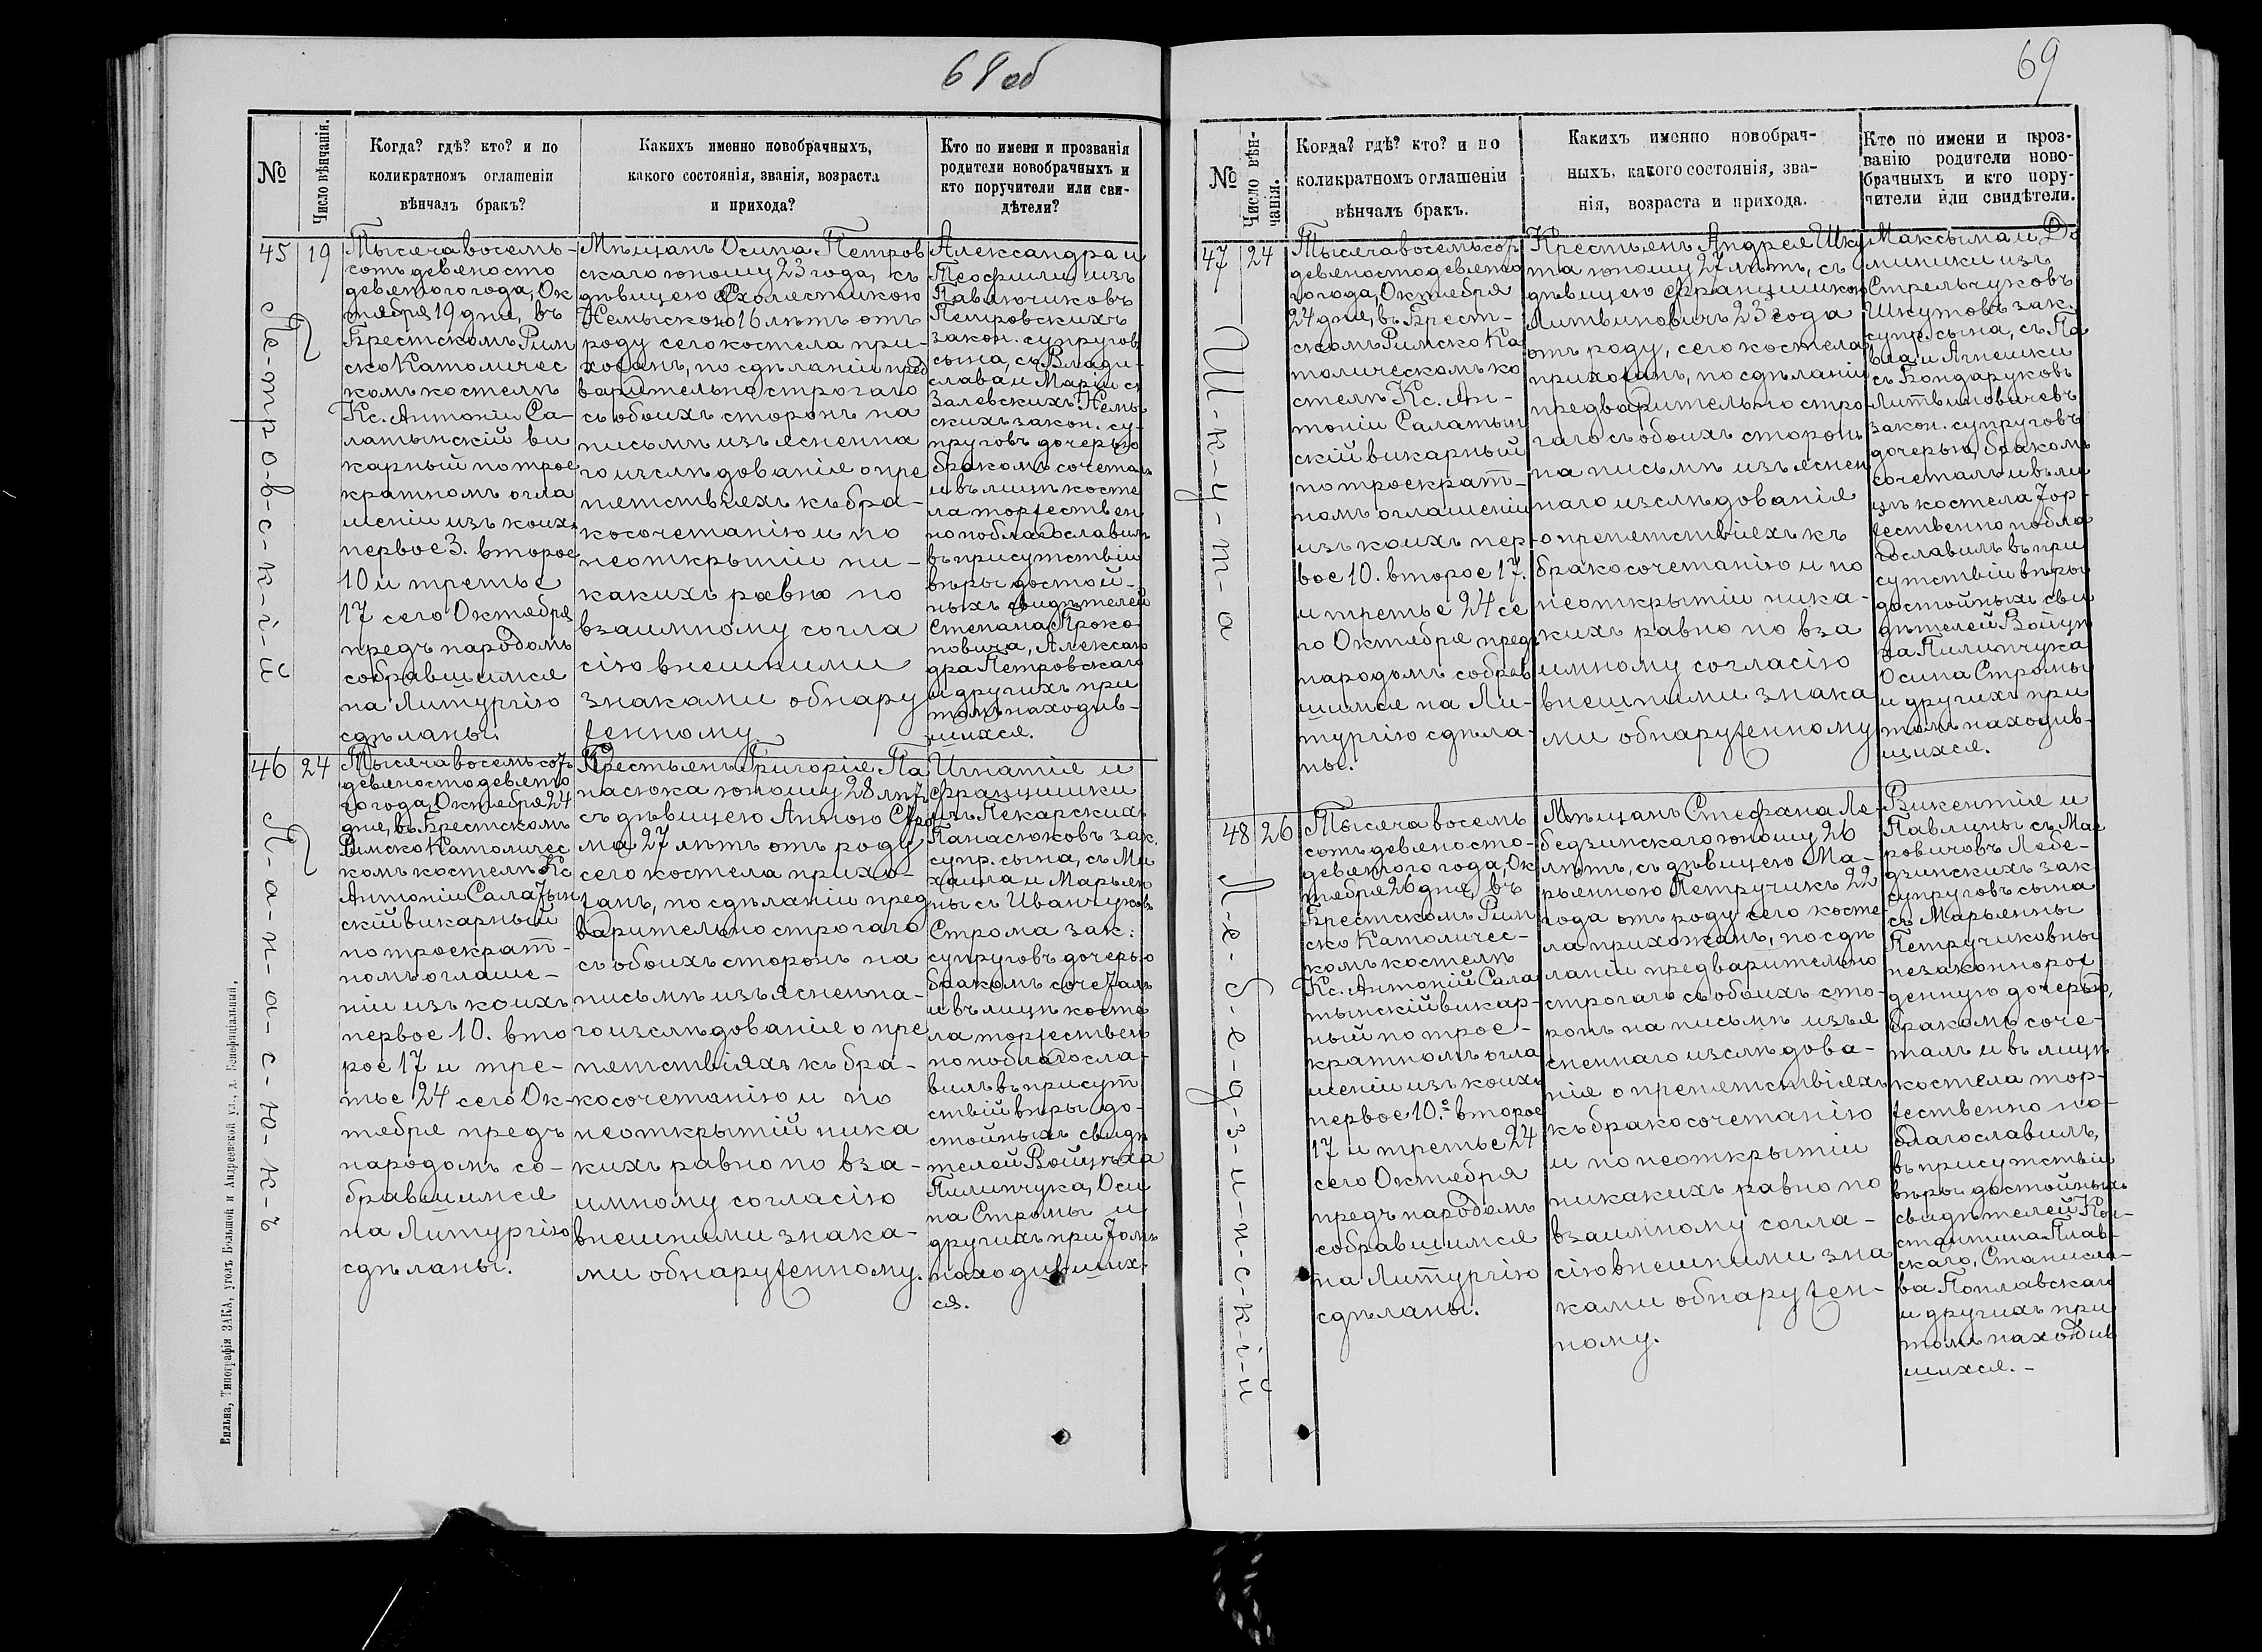 68 об
№
Число вѣнчанія.
Когда? гдѣ? кто? и по
коликратномъ оглашеніи
вѣнчалъ бракъ?
Какихъ именно новобрачныхъ,
какого состоянія, званія, возраста
и прихода?
Кто по имени и прозванія
родители новобрачныхъ и
кто поручители или сви-
дѣтели?
45
Пе-т-р-о-в-с-к-і-й
19
Тысяча восемь-
сотъ девяносто
девятого года, Ок
тября 19 дня, въ
Брестскомъ Рим
ско Католичес
комъ костелѣ
Кс. Антоній Са-
латынскій ви
карный по трое
кратномъ огла
шеніи изъ коихъ
первое 3. второе
10 и третье
17 сего Октября
предъ народомъ
собравшимся
на Литургію
сдѣланы.
Мѣщанъ Осипа Петров
скаго юношу 23 года, съ
дѣвицею Схоластикою
Немыскою 16 лѣтъ отъ
роду сего костела при-
хожанъ, по сдѣланіи пред
варительно строгаго
съ обоихъ сторонъ на
письмѣ изъясненна
го изслѣдованія о пре
пятствіяхъ къ бра-
косочетанію и по
неоткрытіи ни-
какихъ равно по
взаимному согла
сію внешними
знаками обнару
женному
Александра и
Теофили изъ
Павлючиковъ
Петровскихъ
закон. супругов
сына, съ Влади-
слава и Маріи съ
Залевскихъ Немы
скихъ закон. су-
пруговъ дочерью
бракомъ сочеталъ
и въ лицѣ косте
ла торжествен
но поблагославилъ
въ присутствіи
вѣры достой-
ныхъ свидѣтелей
Степана Проко-
повича, Алексан
дра Петровскаго
и другихъ при
томъ находив-
шихся.
46
П-а-н-а-с-ю-к-ъ
24
Тысяча восемь сотъ
девяносто девято
го года, Октября 24
дня, въ Брестскомъ
Римско Католичес
комъ костелѣ Кс
Антоній Салатын
скій викарный
по троекрат-
номъ оглаше-
ніи изъ коихъ
первое 10. вто
рое 17 и тре-
тье 24 сего Ок-
тября предъ
народомъ со-
бравшимся
на Литургію
сдѣланы.
Крестьянъ Григорія Па
насюка юношу 28 лѣтъ
съ дѣвицею Анною Стро
ма 27 лѣтъ отъ роду
сего костела прихо-
жанъ, по сдѣланіи пред
варительно строгаго
съ обоихъ сторонъ на
письмѣ изъясненна-
го изслѣдованія о пре
пятствіяхъ къ бра-
косочетанію и по
неоткрытій ника
кихъ равно по вза-
имному согласію
внешними знака-
ми обнаруженному.
Игнатія и
Францишки
изъ Пекарскихъ
Панасюковъ зак.
супр. сына, съ Ми
хаила и Марьян
ны съ Иванчуковъ
Строма зак.
супруговъ дочерью
бракомъ сочеталъ
и въ лицѣ косте
ла торжествен
но поблагосла-
вилъ въ присут
ствій вѣры до-
стойныхъ свидѣ
телей Войцѣха
Пилипчука, Оси
па Стромы и
другихъ при томъ
находившихъ
ся.
Вильна, Типографія ЗАКА, уголъ Большой и Андреевской ул., д. Бенефиціальный.
69
№
Число вѣн-
чанія.
Когда? гдѣ? кто? и по
коликратномъ оглашеніи
вѣнчалъ бракъ.
Какихъ именно новобрач-
ныхъ, какого состоянія, зва-
нія, возраста и прихода.
Кто по имени и проз-
ванію родители ново-
брачныхъ и кто пору-
чители или свидѣтели.
47
Ш-к-у-т-а
24
Тысяча восемь сот
девяносто девято
го года, Октября
24 дня, въ Брест-
скомъ Римско Ка
толическомъ ко
стелѣ Кс. Ан-
тоніи Салатын
скій викарный
по троекрат-
номъ оглашеніи
изъ коихъ пер-
вое 10. второе 17.
и третье 24 се
го Октября предъ
народомъ собрав
шимся на Ли-
тургію сдѣла-
ны.
Крестьянъ Андрея Шку
та юношу 27 лѣтъ, съ
дѣвицею Францишкою
Литвиновичъ 23 года
отъ роду, сего костела
прихожанъ, по сдѣланіи
предварительно стро
гаго съ обоихъ сторонъ
на письмѣ изъяснен
наго изслѣдованія
о препятствіяхъ къ
бракосочетанію и по
неоткрытіи ника-
кихъ равно по вза
имному согласію
внешними знака
ми обнаруженному
Максыма и До
миники изъ
Стрельчуковъ
Шкутовъ зак.
супр. сына, съ Па
вла и Агнешки
съ Бондаруковъ
Литвиновичевъ
закон. супруговъ
дочерью, бракомъ
сочеталъ и въ ли
цѣ костела тор-
жественно побла
гославилъ въ при
сутствіи вѣры
достойныхъ сви
дѣтелей Войцѣ
ха Пилипчука
Осипа Стромы
и другихъ при
томъ находив-
шихся.
48
Л-е-б-е-д-з-и-н-с-к-і-й
26
Тысяча восемь
сотъ девяносто-
девятого года, Ок
тября 26 дня, въ
Брестскомъ Рим
ско Католичес-
комъ костелѣ
Кс. Антоній Сала
тынскій викар-
ный по трое-
кратномъ огла
шеніи изъ коихъ
первое 10.е второе
17 и третье 24
сего Октября
предъ народомъ
собравшимся
на Литургію
сдѣланы.
Мѣщанъ Стефана Ле-
бедзинскаго юношу 26
лѣтъ, съ дѣвицею Ма-
рьянною Петручикъ 22
года отъ роду сего косте-
ла прихожанъ, по сдѣ
ланіи предварительно
строгаго съ обоихъ сто-
ронъ на письмѣ изъя
сненнаго изслѣдова-
нія о препятствіяхъ
къ бракосочетанію
и по неоткрытіи
никакихъ равно по
взаимному согла-
сію внешними зна
ками обнаружен-
ному.
Викентія и
Павлины съ Мак
ровичовъ Лебе-
дзинскихъ зак
супруговъ сына
съ Марьянны
Петручиковны
незаконнорож
денную дочерью,
бракомъ соче-
талъ и въ лицѣ
костела тор-
жественно по-
благославилъ,
въ присутствіи
вѣры достойныхъ
свидѣтелей Кон-
стантина Плав-
скаго, Станисла-
ва Поплавскаго
и другихъ при
томъ находив
шихся.-